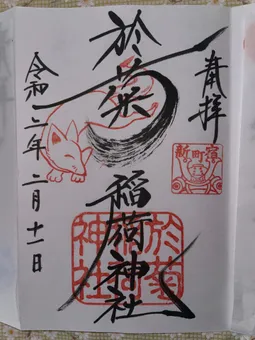 奉拝
新町宿
於菊稲荷神社
於菊
稲荷
神社
令和六年二月十一日